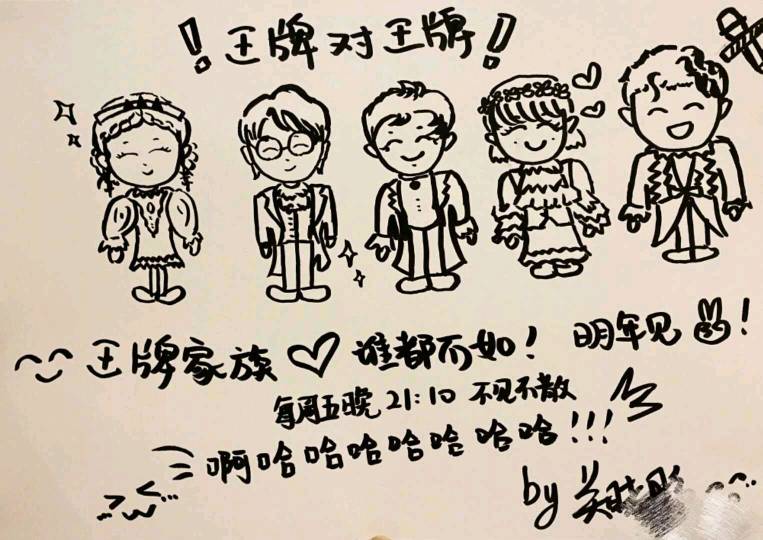 ！王牌对王牌！
王牌家族♡谁都不如！ 明年见！
每周五晚21:10 不见不散
啊哈哈哈哈哈哈哈！！！
by